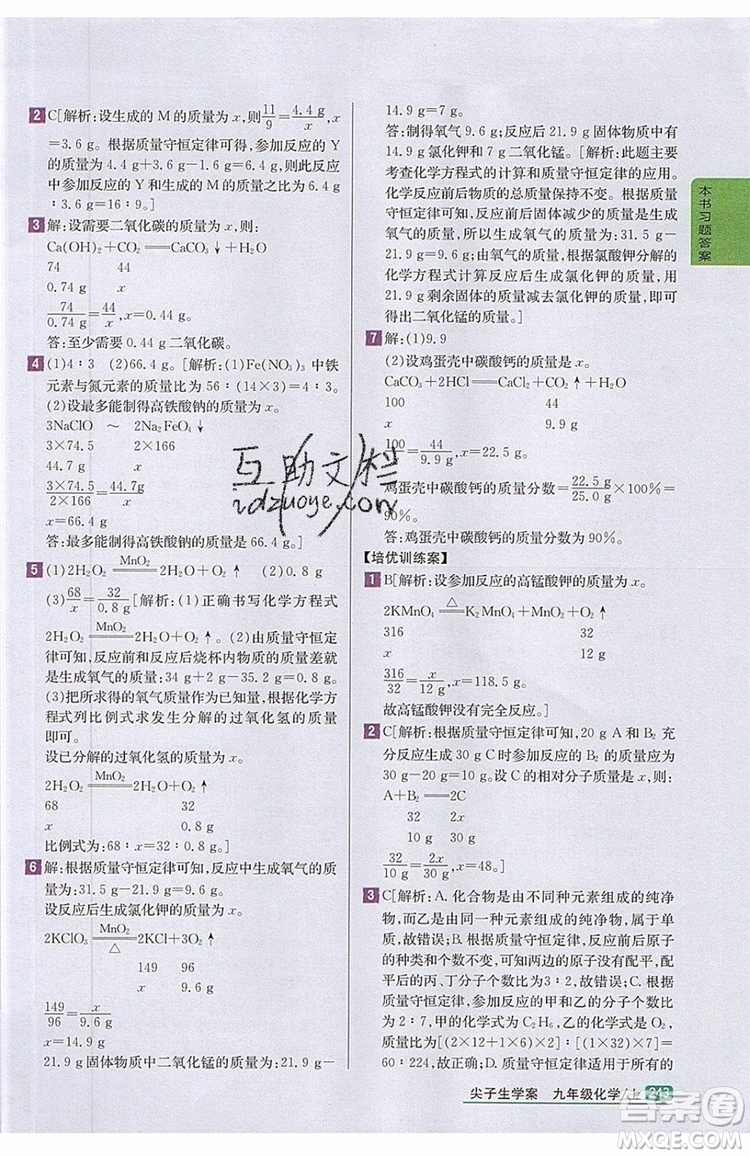 2 C[解析:设生成的 M 的质量为 x,则11/9=4.4 g/x,x
=3.6 g。根据质量守恒定律可得,参加反应的 Y
的质量为 4.4 g+3.6 g-1.6 g=6.4 g。故此反应
中参加反应的 Y 和生成的 M 的质量比为 6.4 g :
3.6 g=16:9。]
3 解:设需要二氧化碳的质量为 x,则:
Ca(OH)₂+CO₂══CaCO₃↓+H₂O
74 44
0.74 g x
74/0.74 g=44/x,x=0.44 g。
答:至少需要 0.44 g 二氧化碳。
4 (1)4:3 (2)66.4 g。[解析:(1)Fe(NO₃)₃ 中铁
元素与氮元素的质量比为 56:(14×3)=4:3。
(2)设最多能制得高铁酸钠的质量为 x。
3NaClO ~ 2Na₂FeO₄
3×74.5 2×166
44.7 g x
3×74.5/2×166=44.7g/x
x=66.4 g
答:最多能制得高铁酸钠的质量为 66.4 g。]
5 (1)2H₂O₂ MnO₂══ 2H₂O+O₂↑ (2)0.8 g
(3)68/x=32/0.8 g[解析:(1)正确书写化学方程式
2H₂O₂ MnO₂══ 2H₂O+O₂↑。(2)由质量守恒定
律可知,反应前和反应后烧杯内物质的质量差就
是生成氧气的质量:34 g+2 g-35.2 g=0.8 g。
(3)把所求得的氧气质量作为已知量,根据化学方
程式列比例式求发生分解的过氧化氢的质量
即可。
设已分解的过氧化氢的质量为 x。
2H₂O₂ MnO₂══ 2H₂O+O₂↑
68 32
x 0.8 g
比例式为:68:x=32:0.8 g]
6 解:根据质量守恒定律可知,反应中生成氧气的质
量为:31.5 g-21.9 g=9.6 g。
设反应后生成氯化钾的质量为 x。
2KClO₃ MnO₂══△ 2KCl+3O₂↑
149 96
x 9.6 g
149/96=x/9.6 g
x=14.9 g
21.9 g 固体物质中二氧化锰的质量为:21.9 g-
14.9 g=7 g
答:制得氧气 9.6 g;反应后 21.9 g 固体物质中有
14.9 g 氯化钾和 7 g 二氧化锰。[解析:此题主要
考查化学方程式的计算和质量守恒定律的应用。
化学反应前后物质的总质量保持不变。根据质量
守恒定律可知反应前后固体减少的质量是生成
氧气的质量,所以生成氧气的质量为:31.5 g-
21.9 g=9.6 g;根据氧气的质量,根据氯酸钾分解的
化学方程式计算反应后生成氯化钾的质量,用
21.9 g 剩余固体的质量减去氯化钾的质量,即可
得出二氧化锰的质量。]
7 解:(1)9.9
(2)设鸡蛋壳中碳酸钙的质量是 x。
CaCO₃+2HCl══CaCl₂+H₂O+CO₂↑
100 44
x 9.9 g
100/x=44/9.9 g,x=22.5 g。
鸡蛋壳中碳酸钙的质量分数=22.5 g/25.0 g×100%=
90%。
答:鸡蛋壳中碳酸钙的质量分数为 90%。
【培优训练案】
1 B[解析:设参加反应的高锰酸钾的质量为 x。
2KMnO₄ △══ K₂MnO₄+MnO₂+O₂↑
316 32
x 12 g
316/x=32/12 g,x=118.5 g。
故高锰酸钾没有完全反应。]
2 C[解析:根据质量守恒定律可知,20 g A 和 B₂ 充
分反应生成 30 g C 时参加反应的 B₂ 的质量为
30 g-20 g=10 g。设 C 的相对分子质量为 x。
A+B₂══2C
32 2x
10 g 30 g
32/10 g=2x/30 g,x=48。]
3 C[解析:A. 化合物是由不同种元素组成的纯净
物,而乙是由一种元素组成的纯净物,属于单
质,故错误;B. 根据质量守恒定律,反应前后原子
的种类和个数不变,可知两边的原子个数配平,配
平后的丙、丁分子个数比为3:2,故错误;C. 根据
质量守恒定律,参加反应的甲和乙的分子个数比
为 2:7,甲的化学式为 C₂H₆,乙的化学式为 O₂,
故参加反应的甲和乙的质量比=(2×30):(7×32)=
60:224,故正确;D. 质量守恒定律适用于所有的
本书习题答案
尖子生学案 九年级化学/上 243
互助文档
hdzuoye.com
答案圈
MXQE.COM